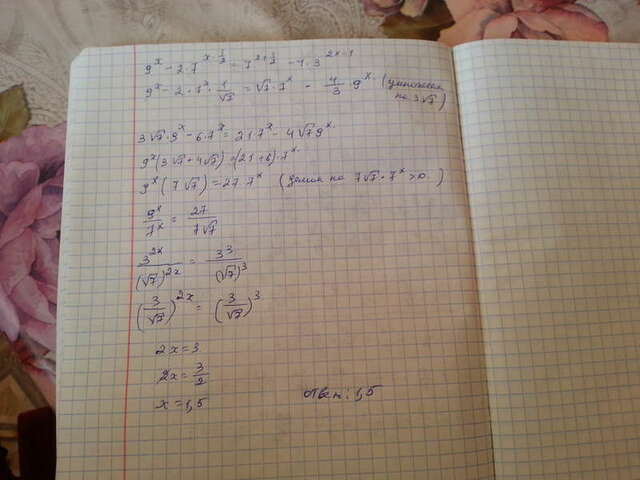 9^x - 2·7^(x-1/2) = 7^(x+1/2) - 4·3^(2x-1)
9^x - 2·7^x·1/√7 = √7·7^x - 4/3·9^x (умножаем на 3√7)
3√7·9^x - 6·7^x = 21·7^x - 4√7 9^x
9^x(3√7+4√7) = (21+6)·7^x
9^x(7√7) = 27·7^x (делим на 7√7·7^x >0)
9^x/7^x = 27/7√7
3^(2x)/(√7)^(2x) = 3^3/(√7)^3
(3/√7)^(2x) = (3/√7)^3
2x=3
2x=3/2
x=1,5
ответ: 1,5